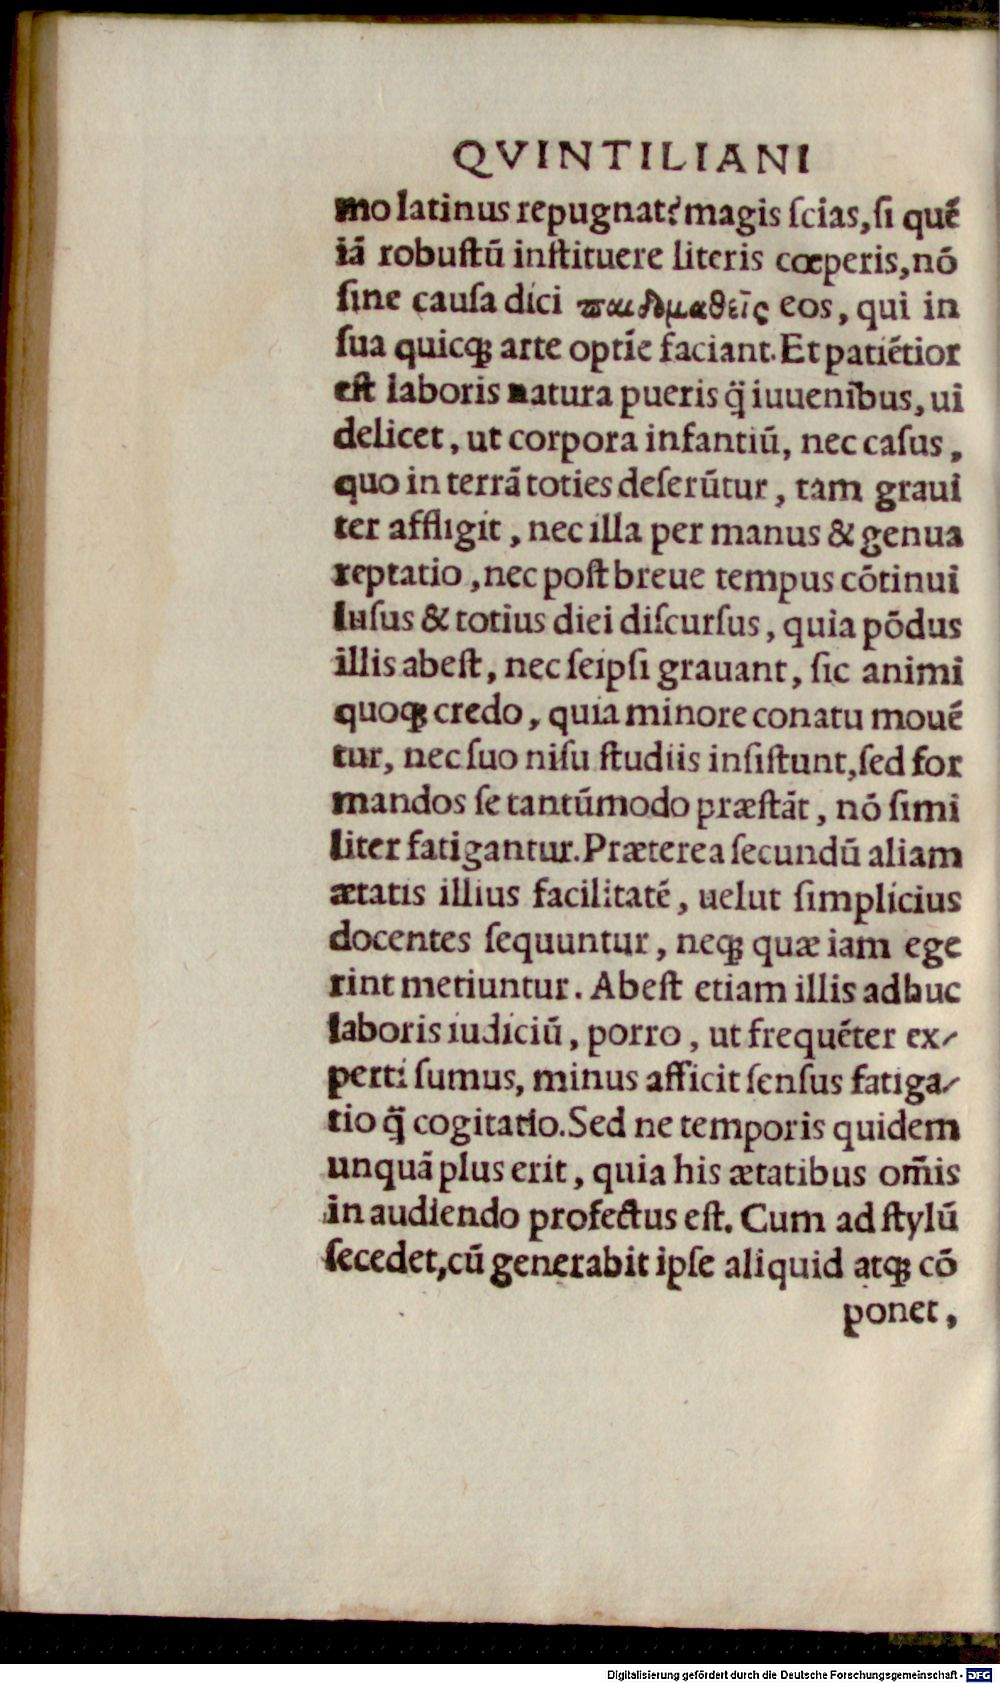 QVINTILIANI
mo latinus repugnat? magis ſcias, ſi quē
iā robuſtū inſtituere literis cœperis, nō
ſine cauſa dici παιδομαθεῖς eos, qui in
ſua quicq; arte optīe faciant. Et patiētior
eſt laboris natura pueris q̈ iuuenibus, ui
delicet, ut corpora infantiū, nec caſus,
quo in terrā toties deferūtur, tam graui
ter affligit, nec illa per manus & genua
reptatio, nec poſt breue tempus cōtinui
luſus & totius diei diſcurſus, quia pōdus
illis abeſt, nec ſeipſi grauant, ſic animi
quoq; credo, quia minore conatu mouē
tur, nec ſuo niſu ſtudiis inſiſtunt, ſed for
mandos ſe tantūmodo præſtāt, nō ſimi
liter fatigantur. Præterea ſecundū aliam
ætatis illius facilitatē, uelut ſimplicius
docentes ſequuntur, neq; quæ iam ege
rint metiuntur. Abeſt etiam illis adhuc
laboris iudiciū, porro, ut frequēter ex⸗
perti ſumus, minus afficit ſenſus fatiga⸗
tio q̈ cogitatio. Sed ne temporis quidem
unquā plus erit, quia his ætatibus om̄is
in audiendo profectus eſt. Cum ad ſtylū
ſecedet, cū generabit ipſe aliquid atq; cō
ponet,
Digitalisierung gefördert durch die Deutsche Forschungsgemeinschaft - DFG